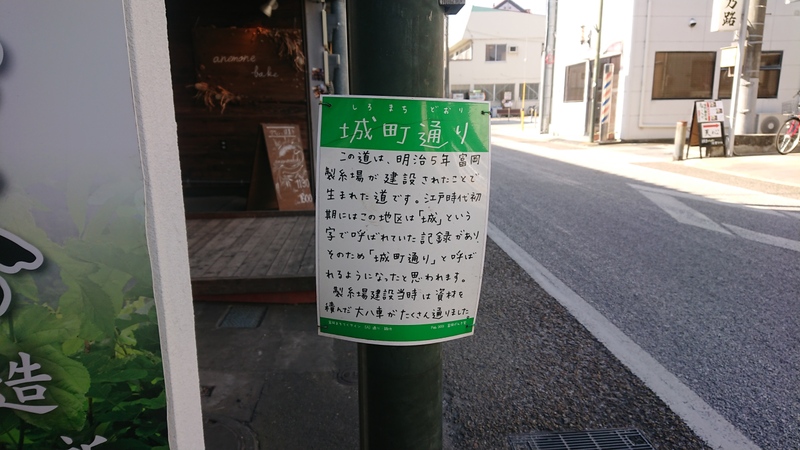 しろまちどおり
城町通り
この道は、明治5年富岡
製糸場が建設されたことで
生まれた道です。江戸時代初
期にはこの地区は「城」という
字で呼ばれていた記録があり、
そのため「城町通り」と呼ば
れるようになったと思われます。
製糸場建設当時は資材を
積んだ大八車がたくさん通りました
造